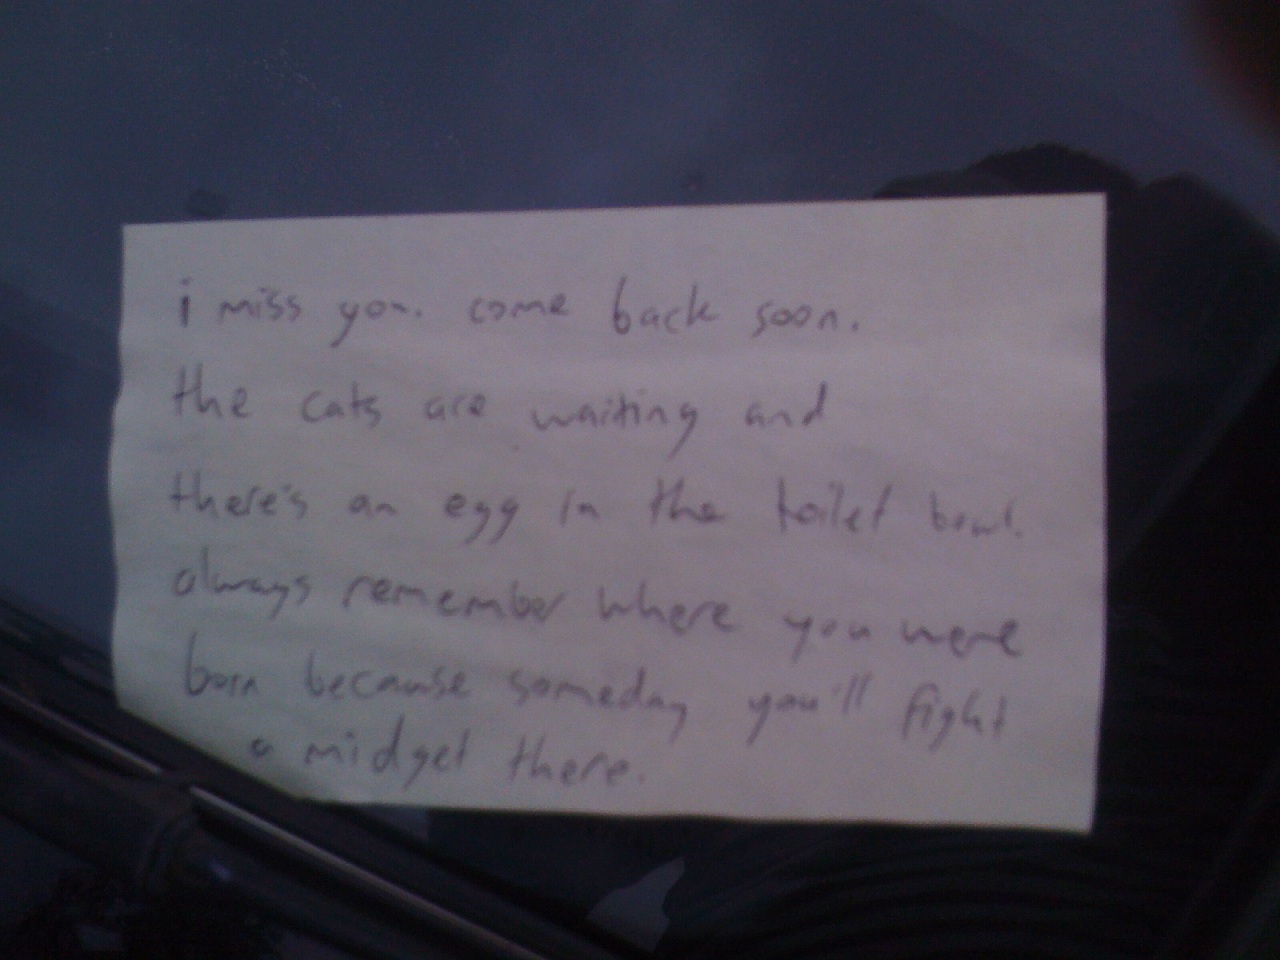 i miss you. come back soon.
the cats are waiting and
there's an egg in the toilet bowl.
always remember where you were
born because someday you'll fight
a midget there.